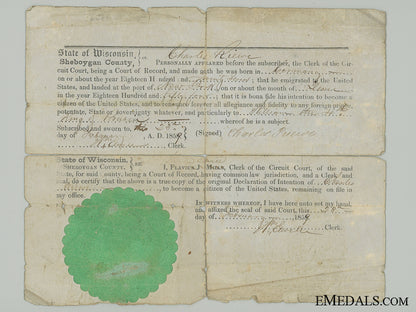 State of Wisconsin,
Sheboygan County, } ss Charles
PERSONALLY APPEARED before the subscriber, the Clerk of the Cir-
cuit Court, being a Court of Record, and made oath that he was born in Germany
on or about the year Eighteen Hundred and that he emigrated to the United
States, and landed at the port of New York on or about the month of June
in the year Eighteen Hundred and that it is bona fide his intention to become a
citizen of the United States, and to renounce forever all allegiance and fidelity to any foreign prince,
potentate, State or sovereignty whatever, and particularly to
King whereof he is a subject.
Subscribed and sworn to this 28 (Signed) Charles
day of A. D. 185
Clerk.
State of Wisconsin,
SHEBOYGAN COUNTY, } ss I, Clerk of the Circuit Court, of the said
State, for said county, being a Court of Record, having common law jurisdiction, and a Clerk and
Seal, do certify that the above is a true copy of the original Declaration of Intention of Charles
to become a citizen of the United States, remaining on file in
my office.
IN WITNESS WHEREOF, I have here unto set my hand
and affixed the seal of said Court, this 28
day of 185
Clerk.
EMEDALS.COM